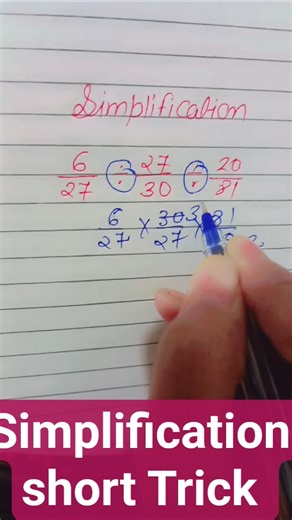 Simplification
6/27 ÷ 27/30 ÷ 20/81
6/27 × 30 3/27 × 81
Simplification
short Trick